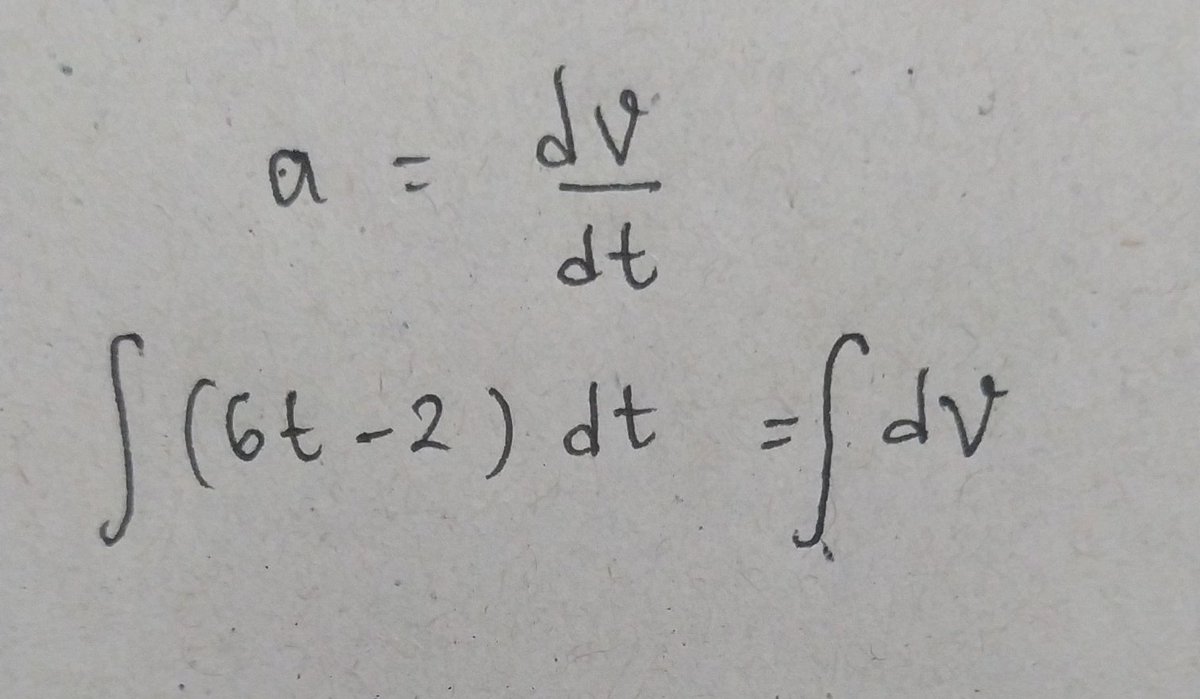 a = dv/dt
∫(6t-2) dt = ∫dv